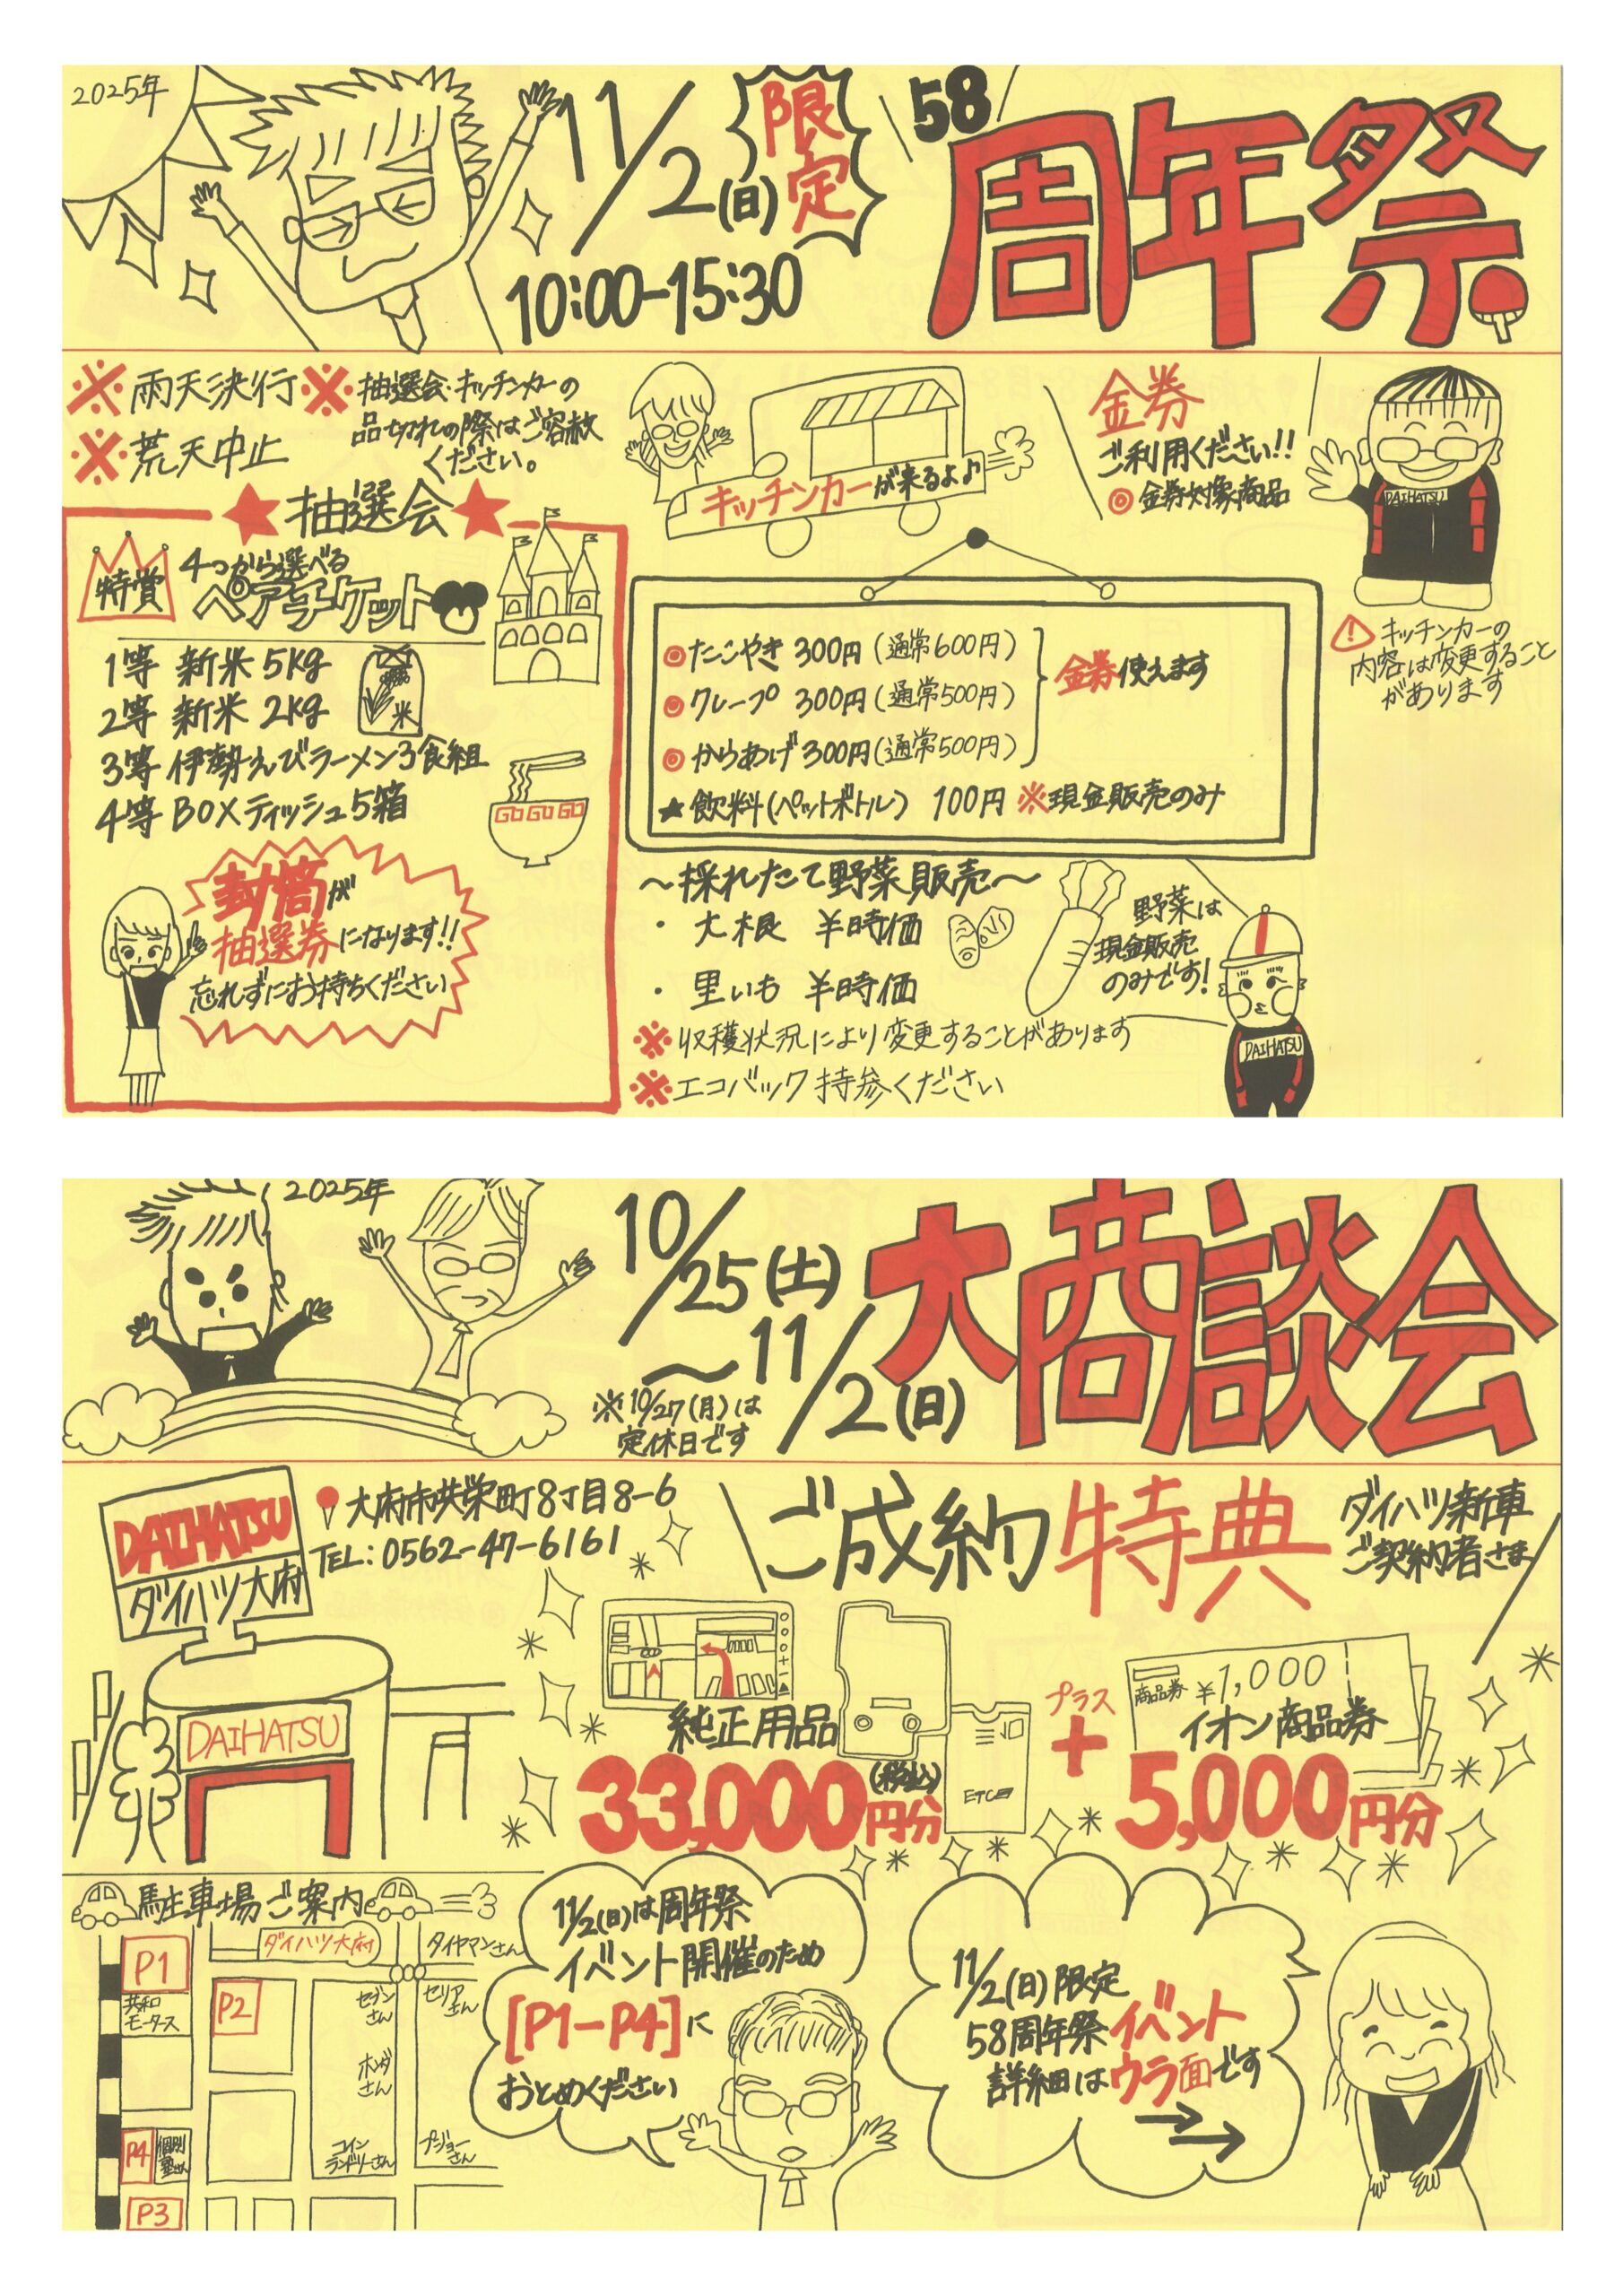 2025年
11/2(日)
限定
10:00-15:30
58
周年祭
※雨天決行
※荒天中止
※抽選会・キッチンカーの
品切れの際はご容赦
ください。
キッチンカーが来るよ♪
金券
ご利用ください!!
◎金券対象商品
DAIHATSU
⚠キッチンカーの
内容は変更すること
があります
★抽選会★
特賞
4つから選べる
ペアチケット
1等 新米 5kg
2等 新米 2kg
米
3等 伊勢えびラーメン3食組
4等 BOXティッシュ5箱
GO GO GO
封筒が
抽選券になります!!
忘れずにお持ちください
◎たこやき 300円(通常600円)
◎クレープ 300円(通常500円)
◎からあげ 300円(通常500円)
金券使えます
★飲料(ペットボトル) 100円 ※現金販売のみ
~採れたて野菜販売~
・大根 ¥時価
・里いも ¥時価
※収穫状況により変更することがあります
※エコバック持参ください
野菜は
現金販売
のみです!
DAIHATSU
2025年
10/25(土)
~11/2(日)
※10/27(月)は
定休日です
大商談会
DAIHATSU
ダイハツ大府
大府市共栄町8丁目8-6
TEL:0562-47-6161
DAIHATSU
ご成約特典
ダイハツ新車
ご契約者さま
純正用品
33,000円分
(税込)
ETC
プラス
+
商品券 ¥1,000
イオン商品券
5,000円分
駐車場ご案内
P1
共和
モータース
P2
ダイハツ大府
タイヤマンさん
セブン
さん
セリア
さん
ホンダ
さん
コイン
ランドリーさん
プジョー
さん
P4
個別
塾さん
P3
11/2(日)は周年祭
イベント開催のため
[P1-P4]に
おとめください
11/2(日)限定
58周年祭イベント
詳細はウラ面です